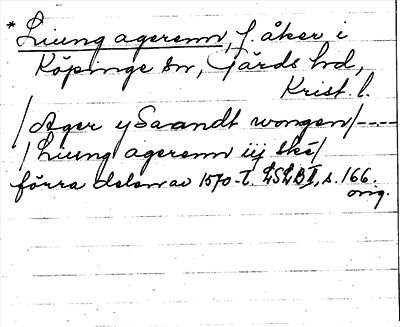 * Liung agerenn, f. åker i
Köpinge sn, Gärds hd,
Krist. l.
/Ager y Saandt wongen/----
/Liung agerenn iij ske/
förra delen av 1570-t. LSLB II, s. 166.
orig.